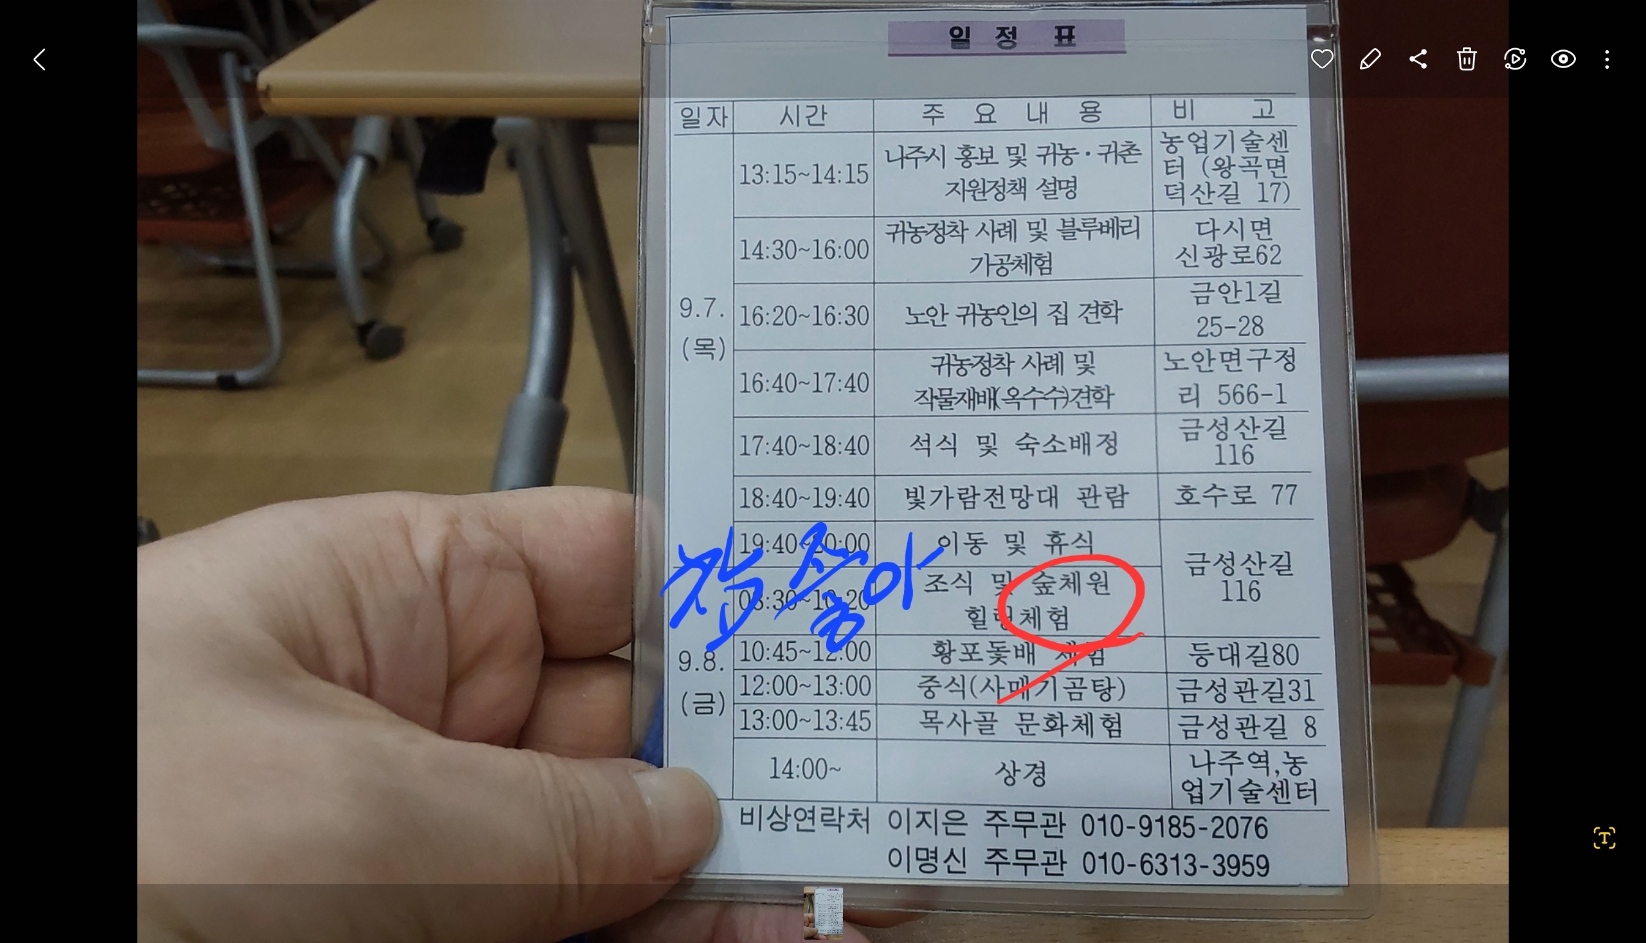 일 정 표
일자 시간 주 요 내 용 비 고
13:15~14:15 나주시 홍보 및 귀농·귀촌 지원정책 설명 농업기술센터 (왕곡면 덕산길 17)
14:30~16:00 귀농정착 사례 및 블루베리 가공체험 다시면 신광로62
9.7. (목)
16:20~16:30 노안 귀농인의 집 견학 금안1길 25-28
16:40~17:40 귀농정착 사례 및 작물재배(옥수수)견학 노안면구정리 566-1
17:40~18:40 석식 및 숙소배정 금성산길 116
18:40~19:40 빛가람전망대 관람 호수로 77
19:40~20:00 이동 및 휴식
금성산길 116
참 좋아
조식 및 숲체원 힐링체험
9.8. (금)
10:45~12:00 황포돛배 체험 등대길80
12:00~13:00 중식(사매기곰탕) 금성관길31
13:00~13:45 목사골 문화체험 금성관길 8
14:00~ 상경 나주역,농업기술센터
비상연락처 이지은 주무관 010-9185-2076
이명신 주무관 010-6313-3959